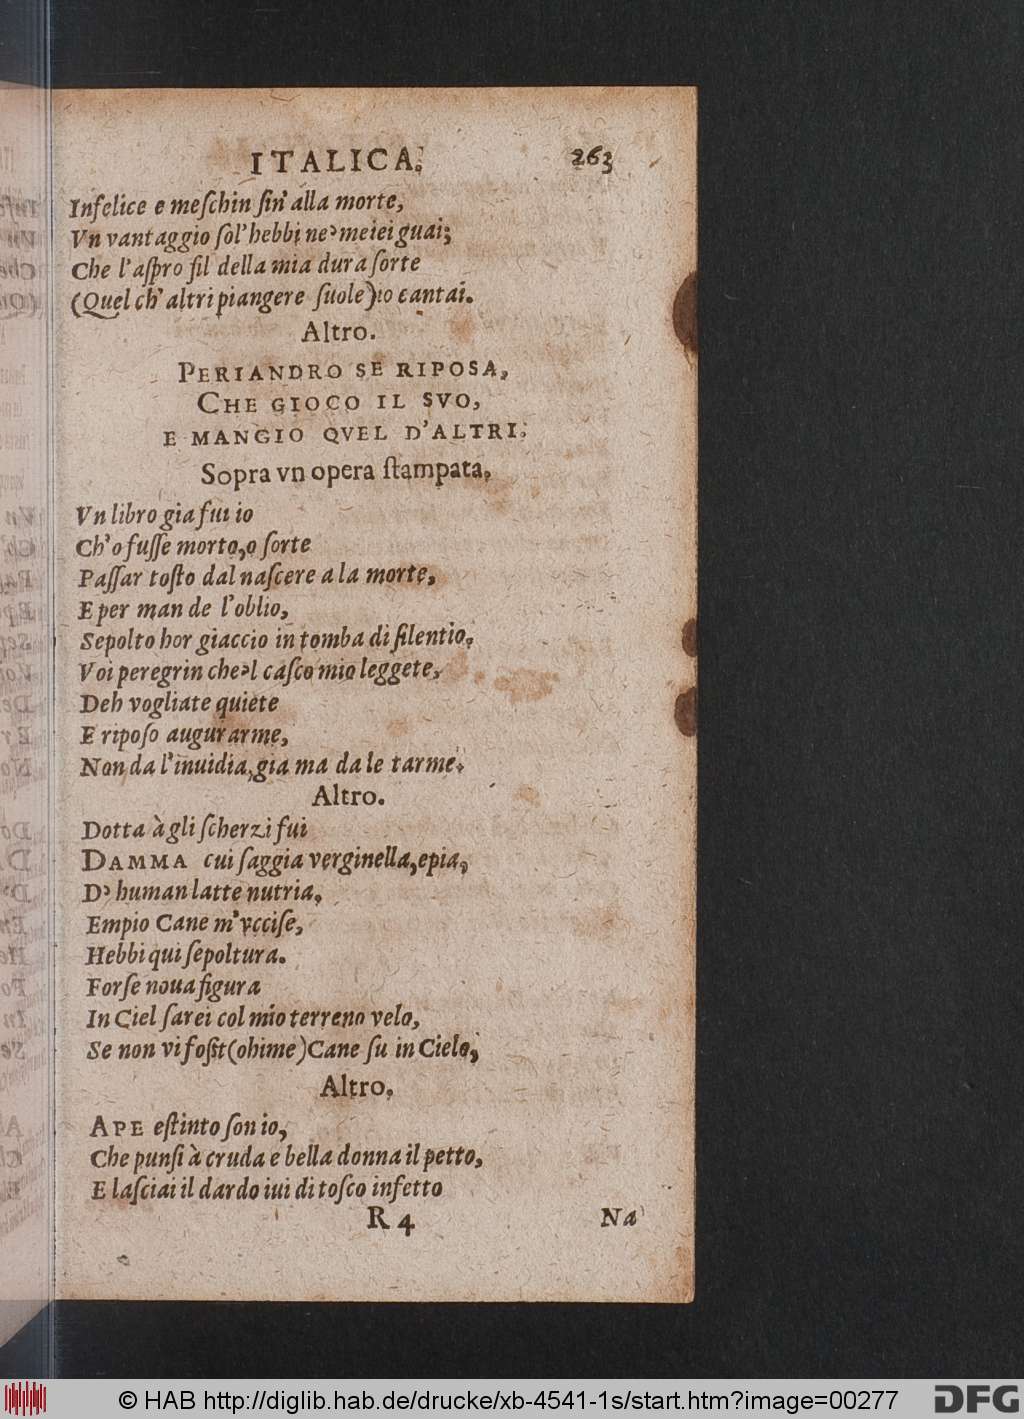 ITALICA. 263
Infelice e meſchin fin' alla morte,
Vn vantaggio ſol' hebbi ne' meiei guai;
Che l'aſpro fil della mia dura ſorte
(Quel ch' altri piangere ſuole) io cantai.
Altro.
PERIANDRO SE RIPOSA,
CHE GIOCO IL SVO,
E MANGIO QVEL D'ALTRI.
Sopra vn opera ſtampata.
Vn libro gia fui io
Ch' o fuſſe morto, o ſorte
Paſſar toſto dal naſcere a la morte,
E per man de l'oblio,
Sepolto hor giaccio in tomba di ſilentio.
Voi peregrin che'l caſco mio leggete,
Deh vogliate quiete
E ripoſo augurarme,
Non da l'inuidia, gia ma da le tarme.
Altro.
Dotta à gli ſcherzi fui
DAMMA cui ſaggia verginella, epia,
D' human latte nutria,
Empio Cane m'vcciſe,
Hebbi qui ſepoltura.
Forſe noua figura
In Ciel ſarei col mio terreno velo,
Se non vi foſſt (ohime) Cane ſu in Cielo,
Altro.
APE eſtinto ſon io,
Che punſi à cruda e bella donna il petto,
E laſciai il dardo iui di toſco infetto
R 4 Na
© HAB http://diglib.hab.de/drucke/xb-4541-1s/start.htm?image=00277
DFG